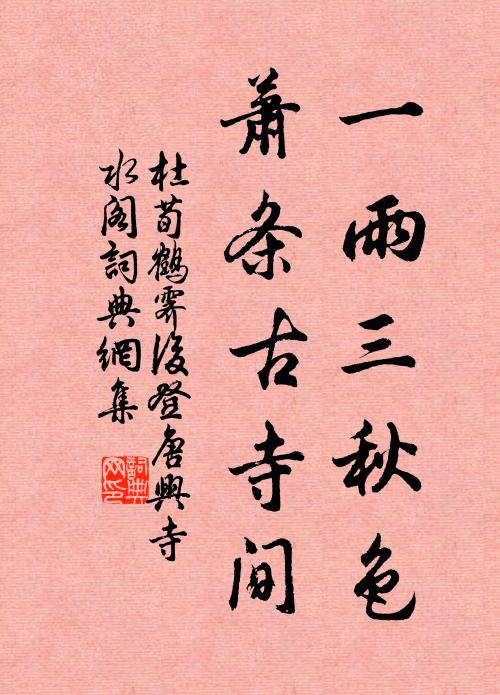 一雨三秋色
萧条古寺间
杜荀鶴霽後登唐興寺
水阁詞典網集
詞典网印